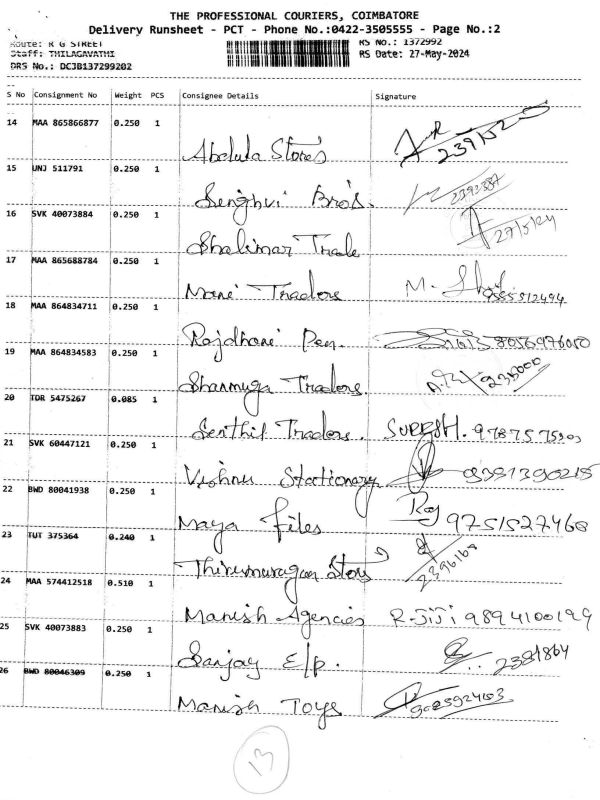 THE PROFESSIONAL COURIERS, COIMBATORE
Delivery Runsheet - PCT - Phone No.:0422-3505555 - Page No.:2
Route: R G STREET RS No.: 1372992
Staff: THILAGAVATHI RS Date: 27-May-2024
DRS No.: DCJB137299202
S No Consignment No Weight PCS Consignee Details Signature
14 MAA 865866877 0.250 1
Abdula Stores
15 UNJ 511791 0.250 1
Senghvi Bro's. 2392387
16 SVK 40073884 0.250 1
Shalimar Trade 27/5/24
17 MAA 865688784 0.250 1
Mani Traders M.
18 MAA 864834711 0.250 1
Rajdhani Pen. 8056976050
19 MAA 864834583 0.250 1
Shanmuga Traders.
20 TDR 5475267 0.085 1
Senthil Traders. SURESH.
21 SVK 60447121 0.250 1
Vishnu Stationary
22 BWD 80041938 0.250 1
Maya Files Raj 9751527468
23 TUT 375364 0.240 1
Thirumurugan Stors 2396168
24 MAA 574412518 0.510 1
Manish Agencies R-JiJi 9894100199
25 SVK 40073883 0.250 1
Sanjay E/p. 2381864
26 BWD 80046309 0.250 1
Manish Toys
13